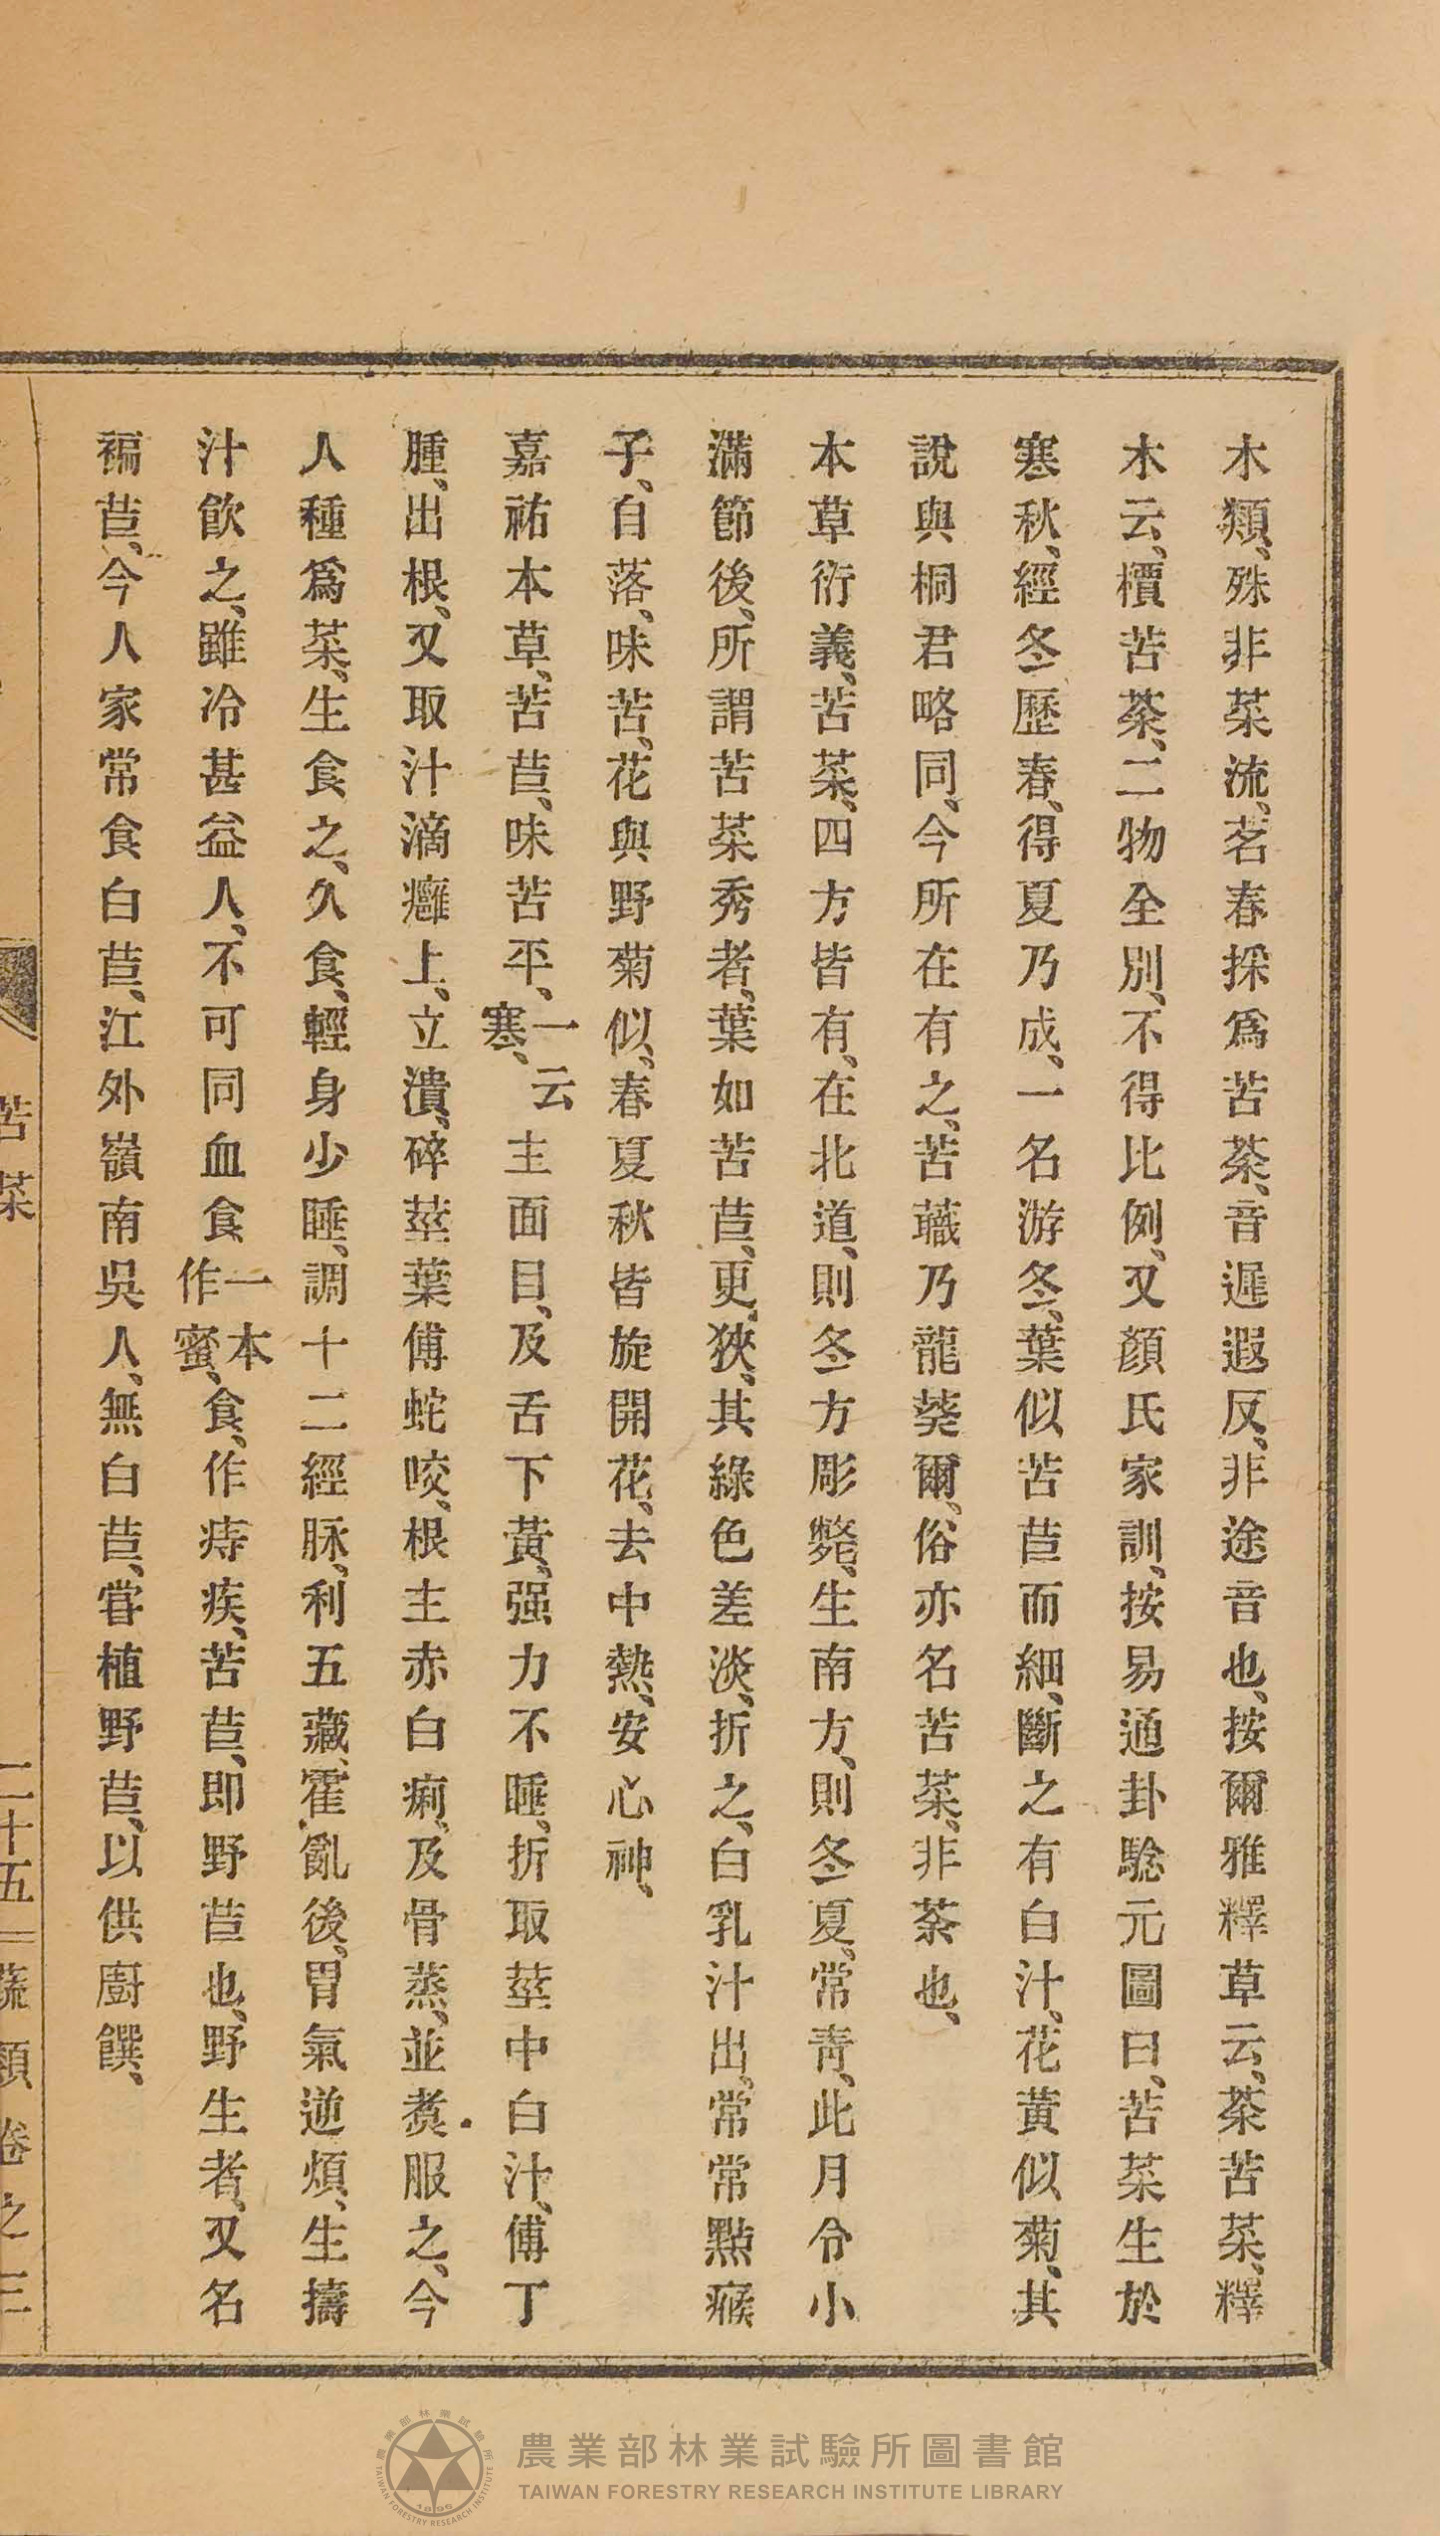 木類、殊非菜流、茗春採爲苦荼、音遲遐反、非途音也、按爾雅釋草云、荼苦菜、釋
木云、檟苦荼、二物全別、不得比例、又顏氏家訓、按易通卦騐元圖曰、苦菜生於
寒秋、經冬歷春、得夏乃成、一名游冬、葉似苦苣而細、斷之有白汁、花黃似菊、其
說與桐君略同、今所在有之、苦蘵乃龍葵爾、俗亦名苦菜、非荼也、
本草衍義、苦菜、四方皆有、在北道、則冬方彫斃、生南方、則冬夏、常靑、此月令小
滿節後、所謂苦菜秀者、葉如苦苣、更狹、其綠色差淡、折之、白乳汁出、常常點瘊
子、自落、味苦、花與野菊似、春夏秋皆旋開花、去中熱、安心神、
嘉祐本草、苦苣、味苦平、一云寒、主面目、及舌下黃、强力不睡、折取莖中白汁、傅丁
腫、出根、又取汁滴癰上、立潰、碎莖葉傅蛇咬、根主赤白痢、及骨蒸、並煑服之、今
人種爲菜、生食之、久食、輕身少睡、調十二經脉、利五藏、霍亂後、胃氣逆煩、生擣
汁飮之、雖冷甚益人、不可同血食一本作蜜、食、作痔疾、苦苣、即野苣也、野生者、又名
褊苣、今人家常食白苣、江外嶺南吳人、無白苣、嘗植野苣、以供廚饌、
苦菜
二十五
蔬類卷之三
農業部林業試驗所圖書館
TAIWAN FORESTRY RESEARCH INSTITUTE LIBRARY
農業部林業試驗所
TAIWAN FORESTRY RESEARCH INSTITUTE
1895